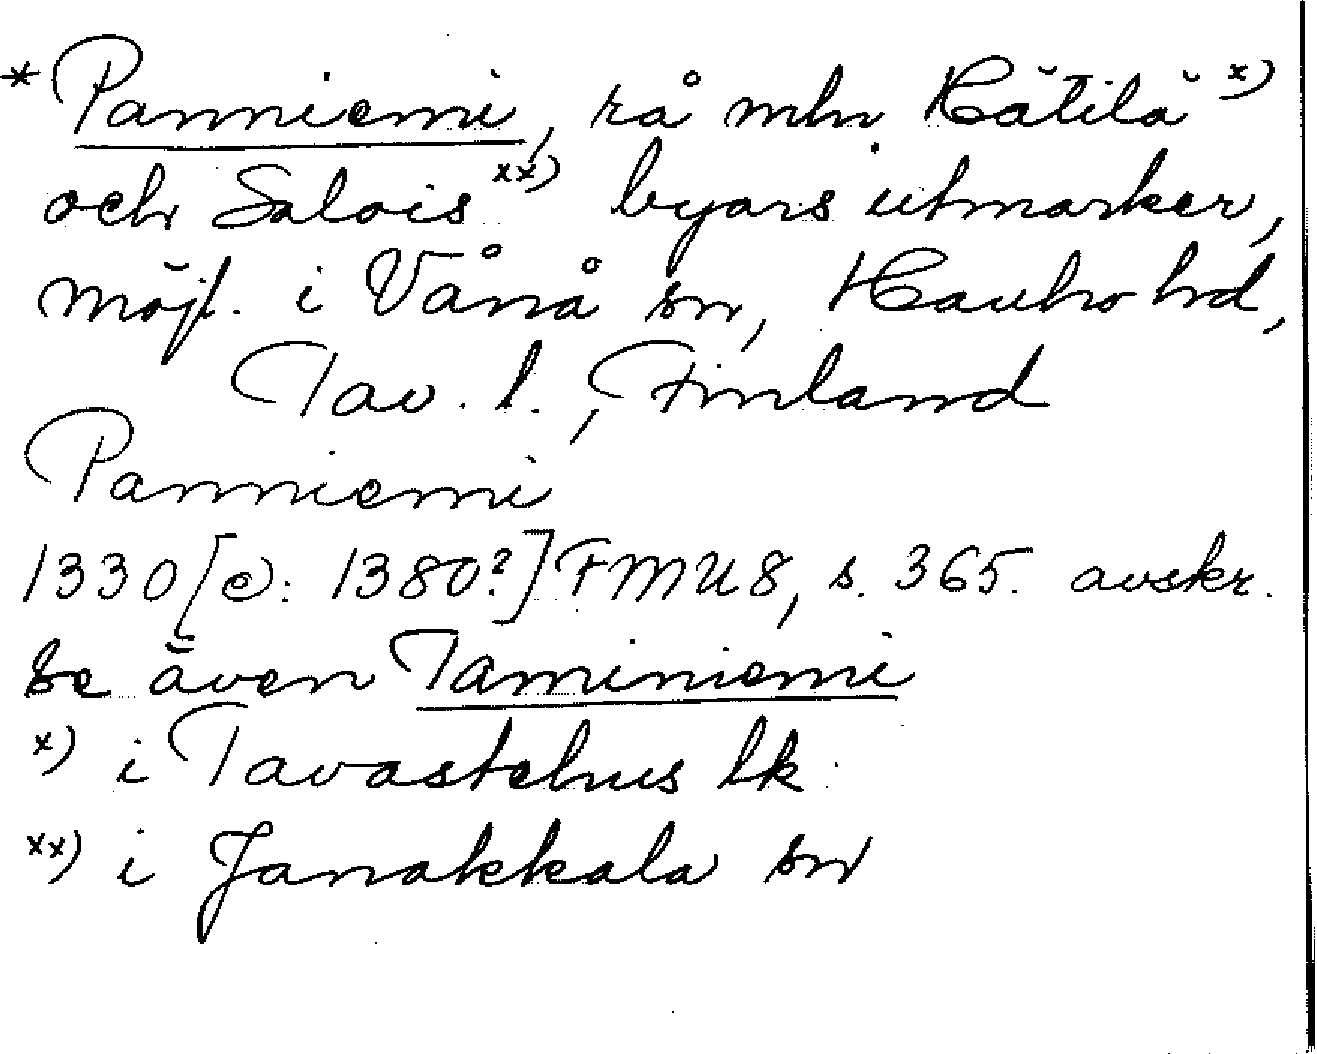 * Panniemi, rå mln. Kätilä x)
och Salois xx) byars utmarker,
möjl. i Vånå sn, Hauho hd,
Tav. l., Finland
Panniemi
1330 [ɔ: 1380?] FMU 8, s. 365. avskr.
Se även Taminiemi
x) i Tavastehus lk
xx) i Janakkala sn